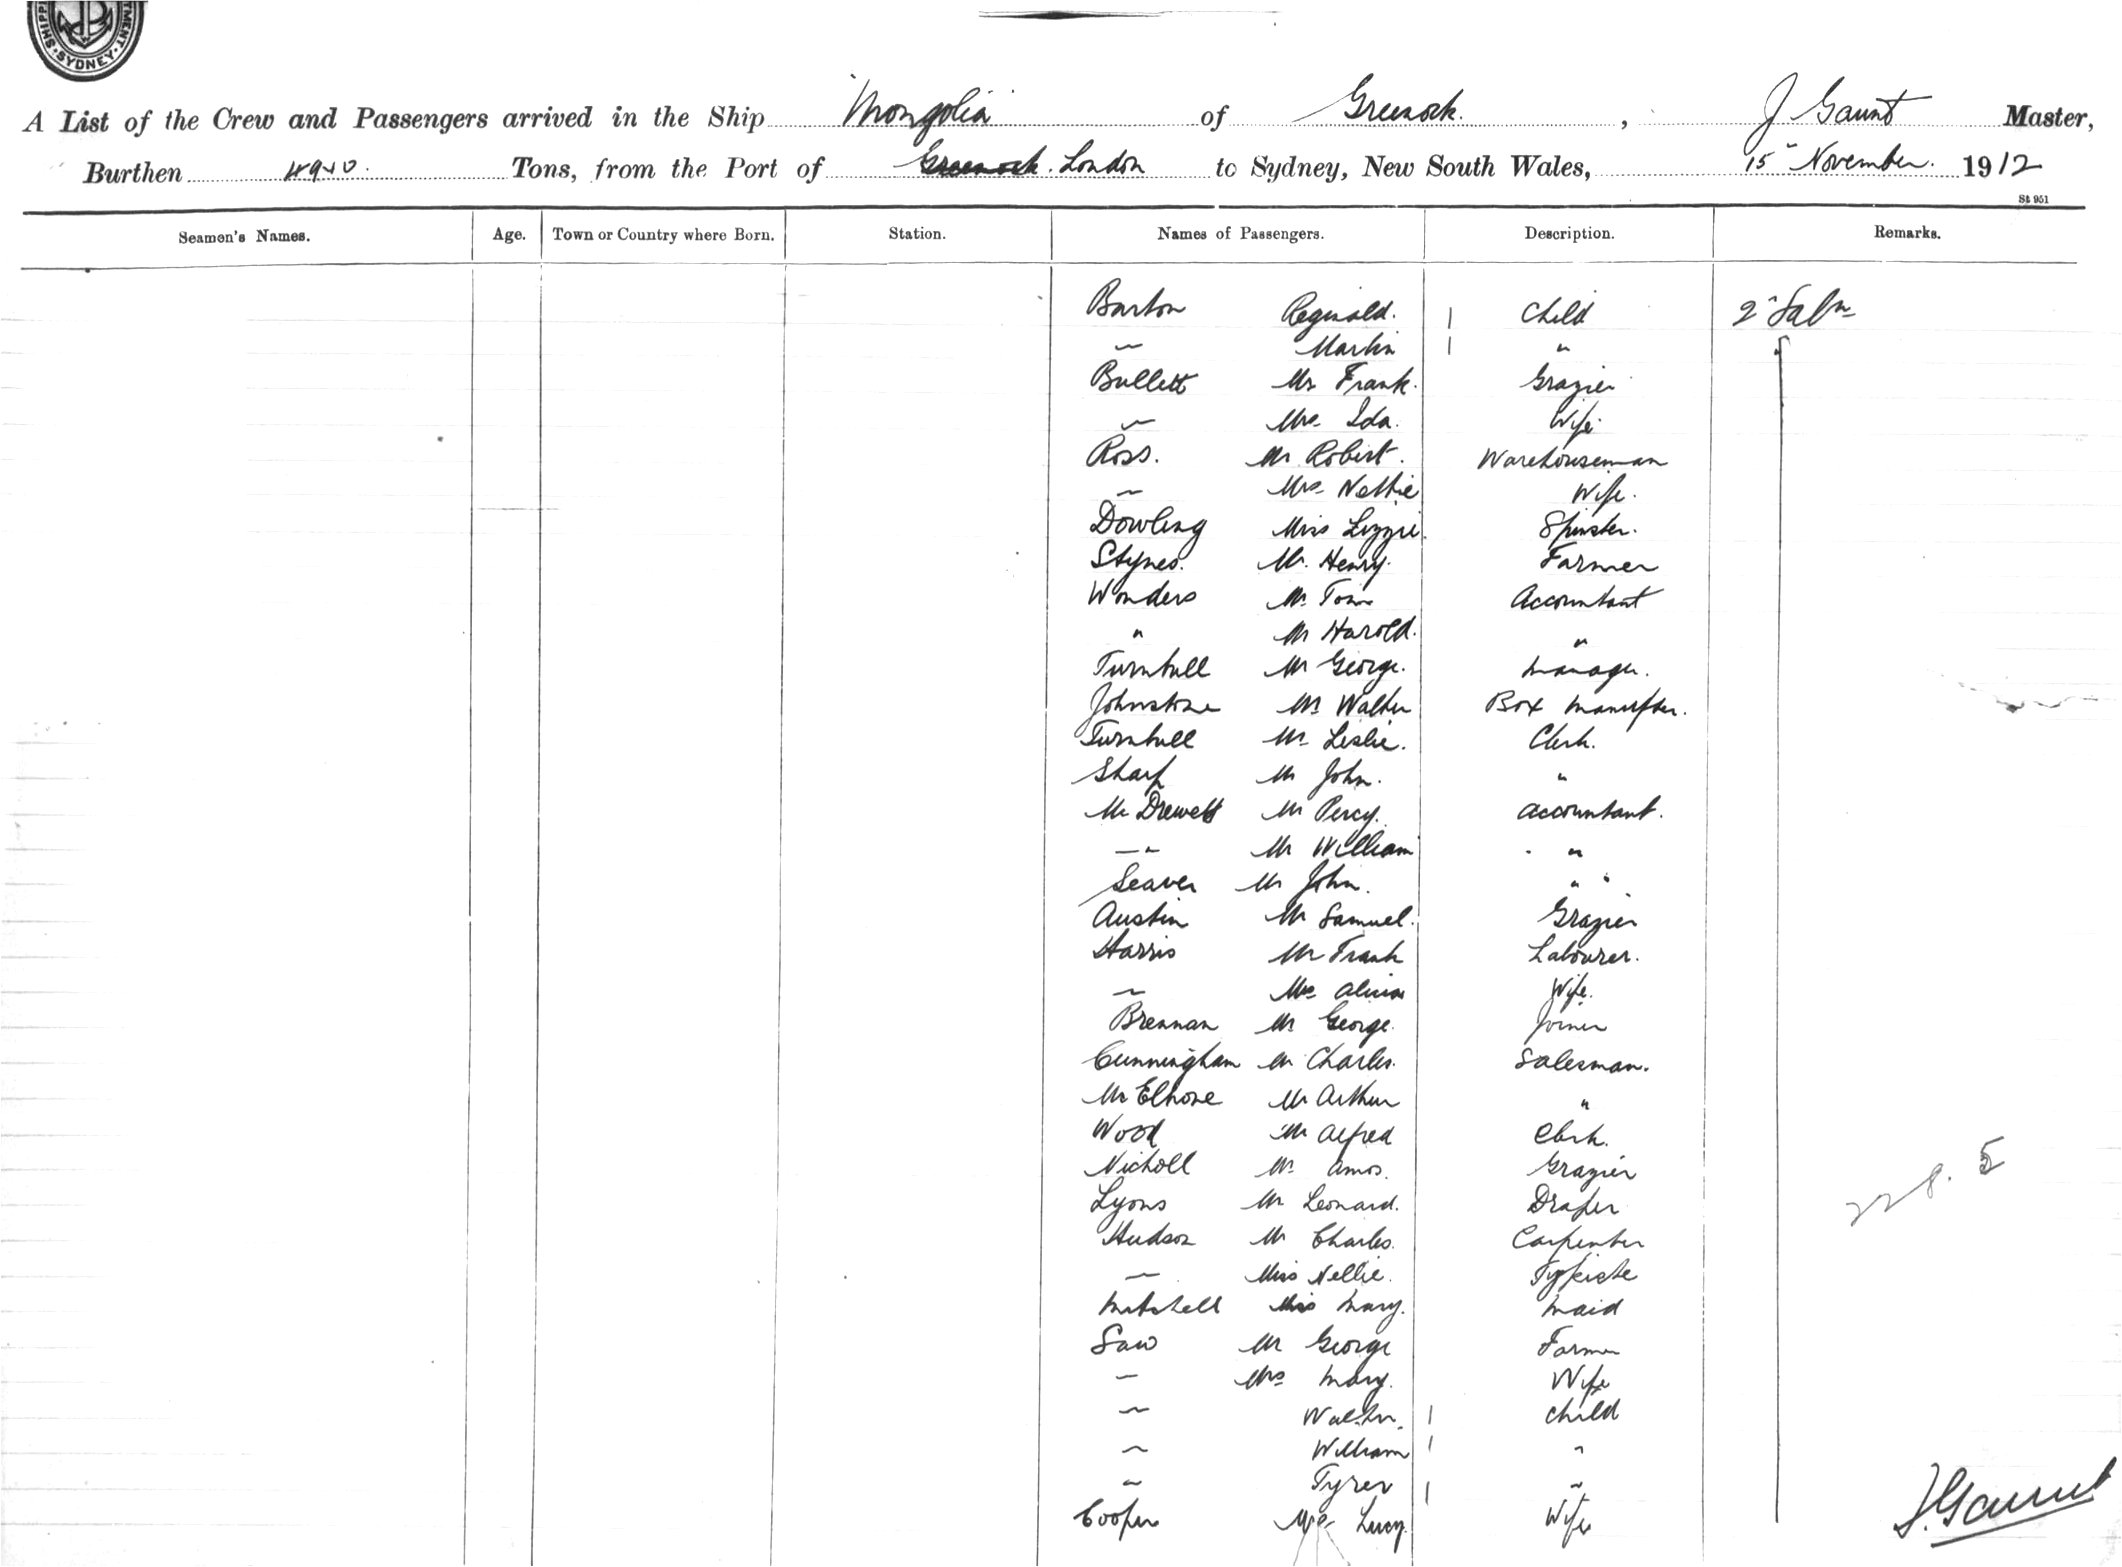 SYDNEY
A List of the Crew and Passengers arrived in the Ship Mongolia of Greenock. , J Gaunt Master,
Burthen 4940. Tons, from the Port of Greenock. London to Sydney, New South Wales, 15" November. 1912
St 951
Seamen's Names. Age. Town or Country where Born. Station. Names of Passengers. Description. Remarks.
Barton Reginald. 1 Child 2" Saln
" Martin 1 "
Bullett Mr Frank. Grazier
" Mrs Ida. Wife
Ross. Mr Robert. Warehouseman
" Mrs Nettie Wife.
Dowling Miss Lizzie. Spinster.
Stynes. Mr. Henry. Farmer
Wonders Mr Tom Accountant
" Mr Harold. "
Turnbull Mr George. Manager.
Johnstone Mr Walter Box Manufter.
Turnbull Mr Leslie. Clerk.
Sharp Mr John. "
Mc Drewett Mr Percy. Accountant.
— " Mr William "
Seaver Mr John. " "
Austin Mr Samuel. Grazier
Harris Mr Frank Labourer.
" Mrs Wife.
Brennan Mr George. Joiner
Cunningham Mr Charles. Salesman.
Mc Elhone Mr Arthur "
Wood Mr Alfred Clerk.
Nicholl Mr Amos. Grazier
Lyons Mr Leonard. Draper
Hudson Mr Charles. Carpenter
" Miss Nellie. Typiste
Mitchell Miss Mary. Maid
Saw Mr George Farmer
" Mrs Mary. Wife
" Walter. 1 Child
" William 1 "
" Tyrer 1 "
Cooper Mrs Lucy. Wife
J. Gaunt